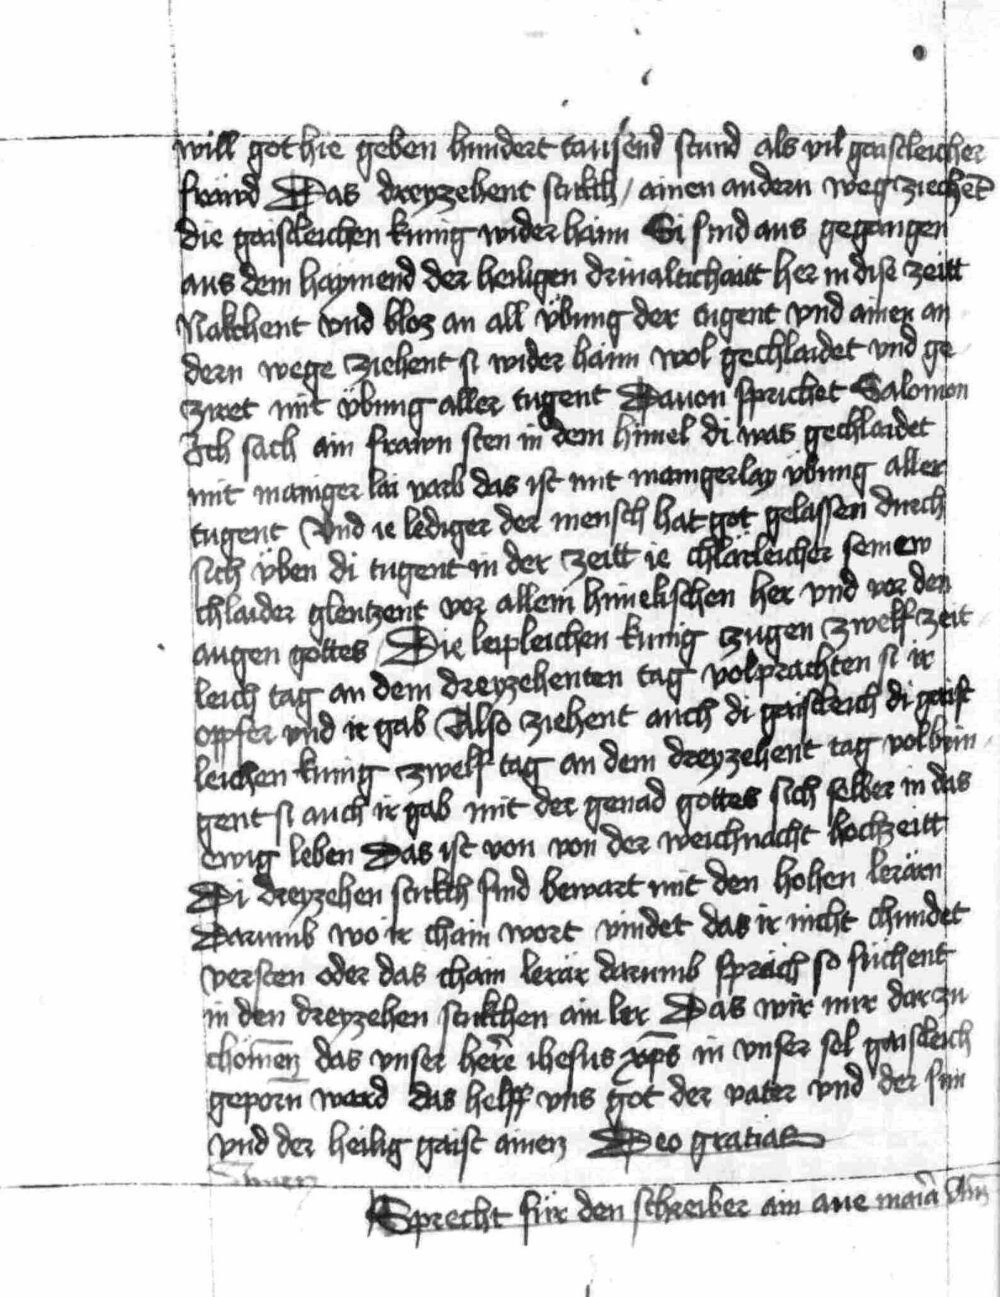 will got hie geben hundert tausend stund als vil gaistleicher
fräwd Das dreyzehent stukch / ainen andern weg ziechent̄
die gaistleichen kunig wider haim Si sind aus gegangen
aus dem haymend der heiligen driualtichaitt her in dise zeitt
Nakchent vnd bloz an all übung der tugent vnd ainen an
dern wege ziehent si wider haim wol gechlaidet vnd ge
ziret mit übung aller tugent Dauon sprichet Salomon
Ich sach ain frawn sten in dem himel di was gechlaidet
mit maniger lai varb das ist mit manigerlay übung aller
tugent Vnd ie lediger der mensch hat got gelassen durch
sich üben di tugent in der zeitt ie chlärleicher seinew
chlaider glentzent vor allem himelischen her vnd vor den
augen gottes / Die leipleichen kunig zugen zwelf zeit
leich tag an dem dreyzehenten tag volprachten si ir
opfer vnd ir gab Also ziehent auch di gaistleich di gaist
leichen kunig zwelf tag an dem dreyzehent tag volbrin
gent si auch ir gab mit der genad gottes sich selber in das
ewig leben Das ist von von der weichnacht hochzeitt
Di dreyzehen stukch sind bewart mit den hohen lerärn
Darumb wo ir chain wort vindet das ir nicht chundet
versten oder das chain lerär darumb sprach so suchent
in den dreyzehen stukchen ain ler Das wir nur dar zu
chōmen das vnser herre ihesus xp̄s in vnser sel gaistleich
geporn̄ werd das helff vns got der vater vnd der sun
vnd der heilig gaist amen Deo gratias
Sprecht für den schreiber ain aue maīa Am̄